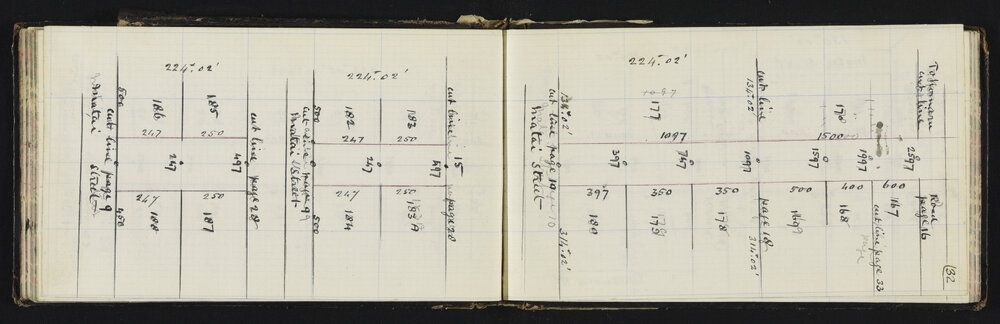 224°.02'
500
Matai Street
cut line page 9
450
186
185
247
250
247
497
247
250
188
187
cut line page 28
224°.02'
500
Matai Street
cut line page 9
500
182
183
247
250
247
497
247
250
184
183A
cut line
15
page 28
224°.02'
134°.02'
cut line page 10
Matai Street
314°.02'
177
1097
397
747
1097
1597
1997
2597
397
350
350
500
400
600
180
179
178
169
168
167
cut line
134°.02'
page 18
314°.02'
170
1500
Tokomaru
cut line
Road
page 16
cut line page 33
132